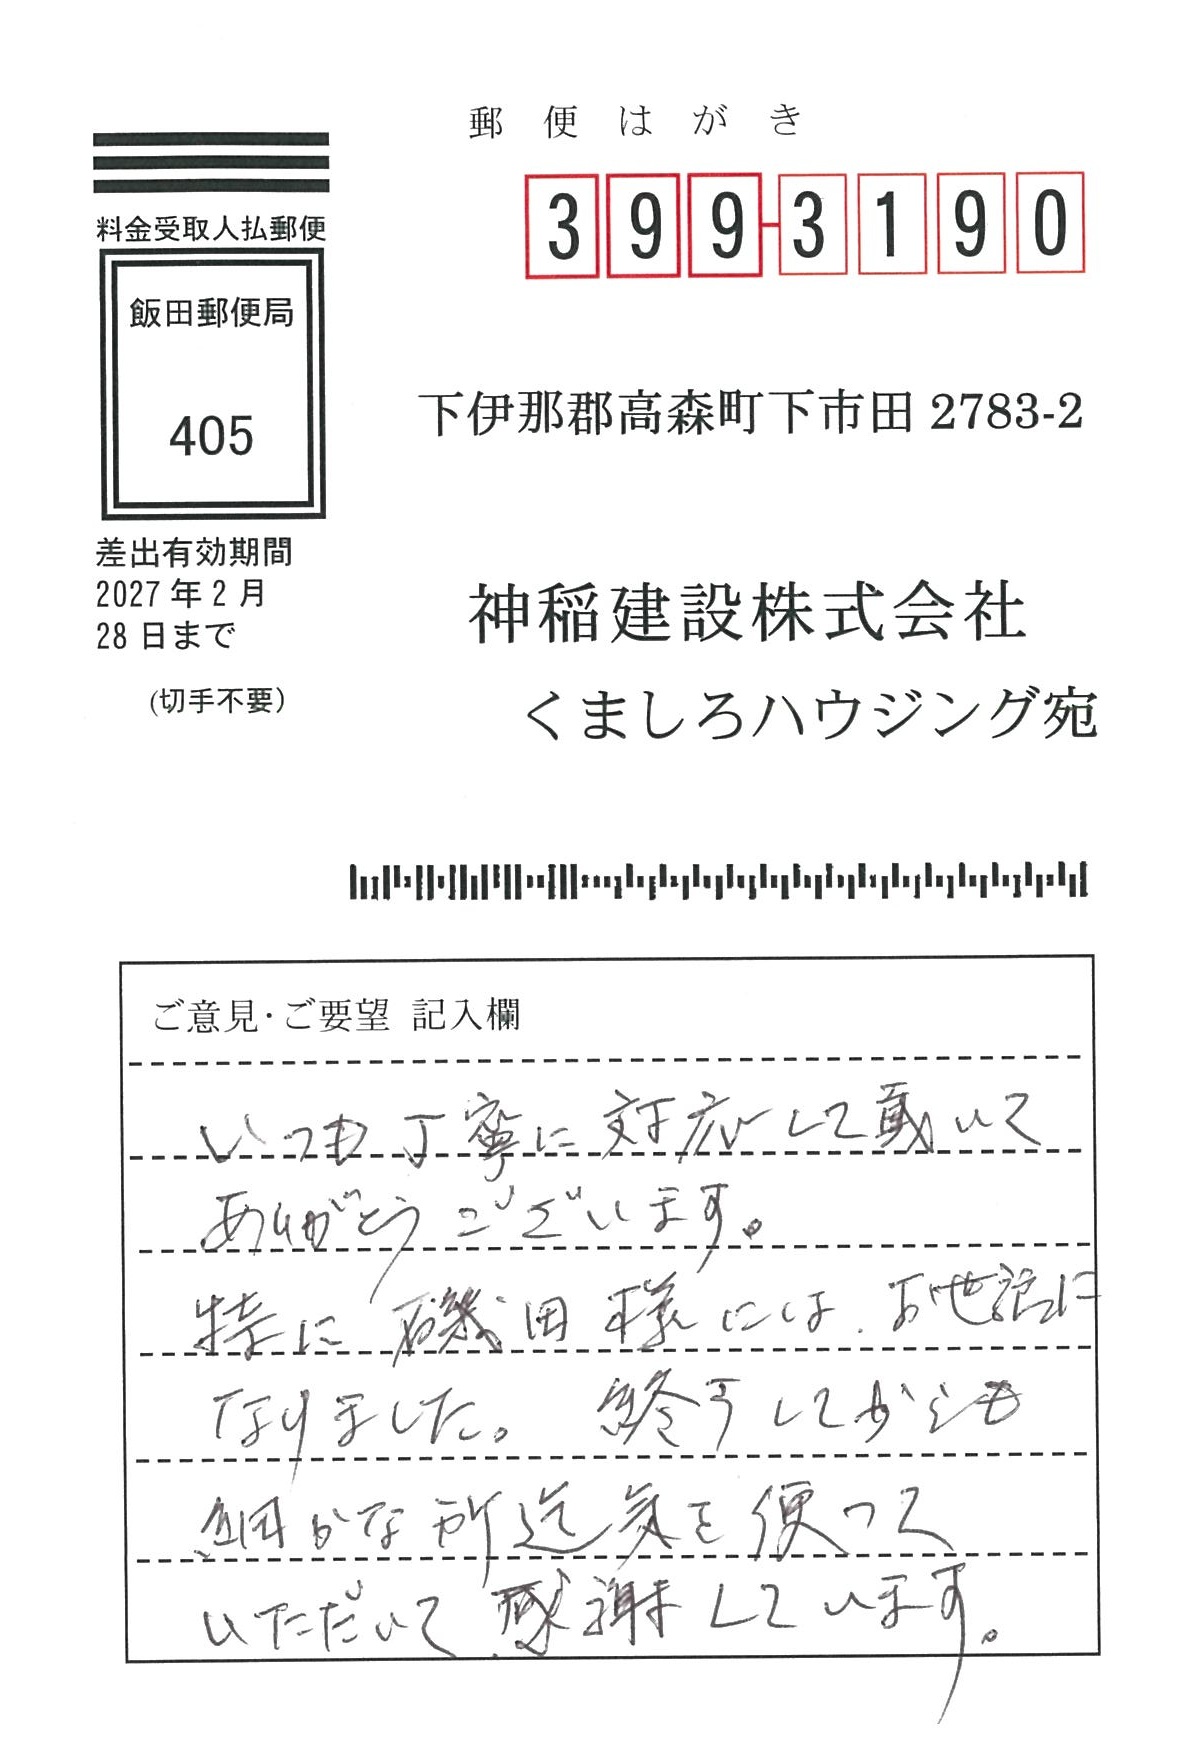 郵便はがき
399-3190
料金受取人払郵便
飯田郵便局
405
差出有効期間
2027年2月
28日まで
(切手不要)
下伊那郡高森町下市田2783-2
神稲建設株式会社
くましろハウジング宛
ご意見・ご要望 記入欄
いつも丁寧に対応して戴いて
ありがとうございます。
特に磯田様には、お世話に
なりました。終了してからも
細かな所迄気を使って
いただいて感謝しています。